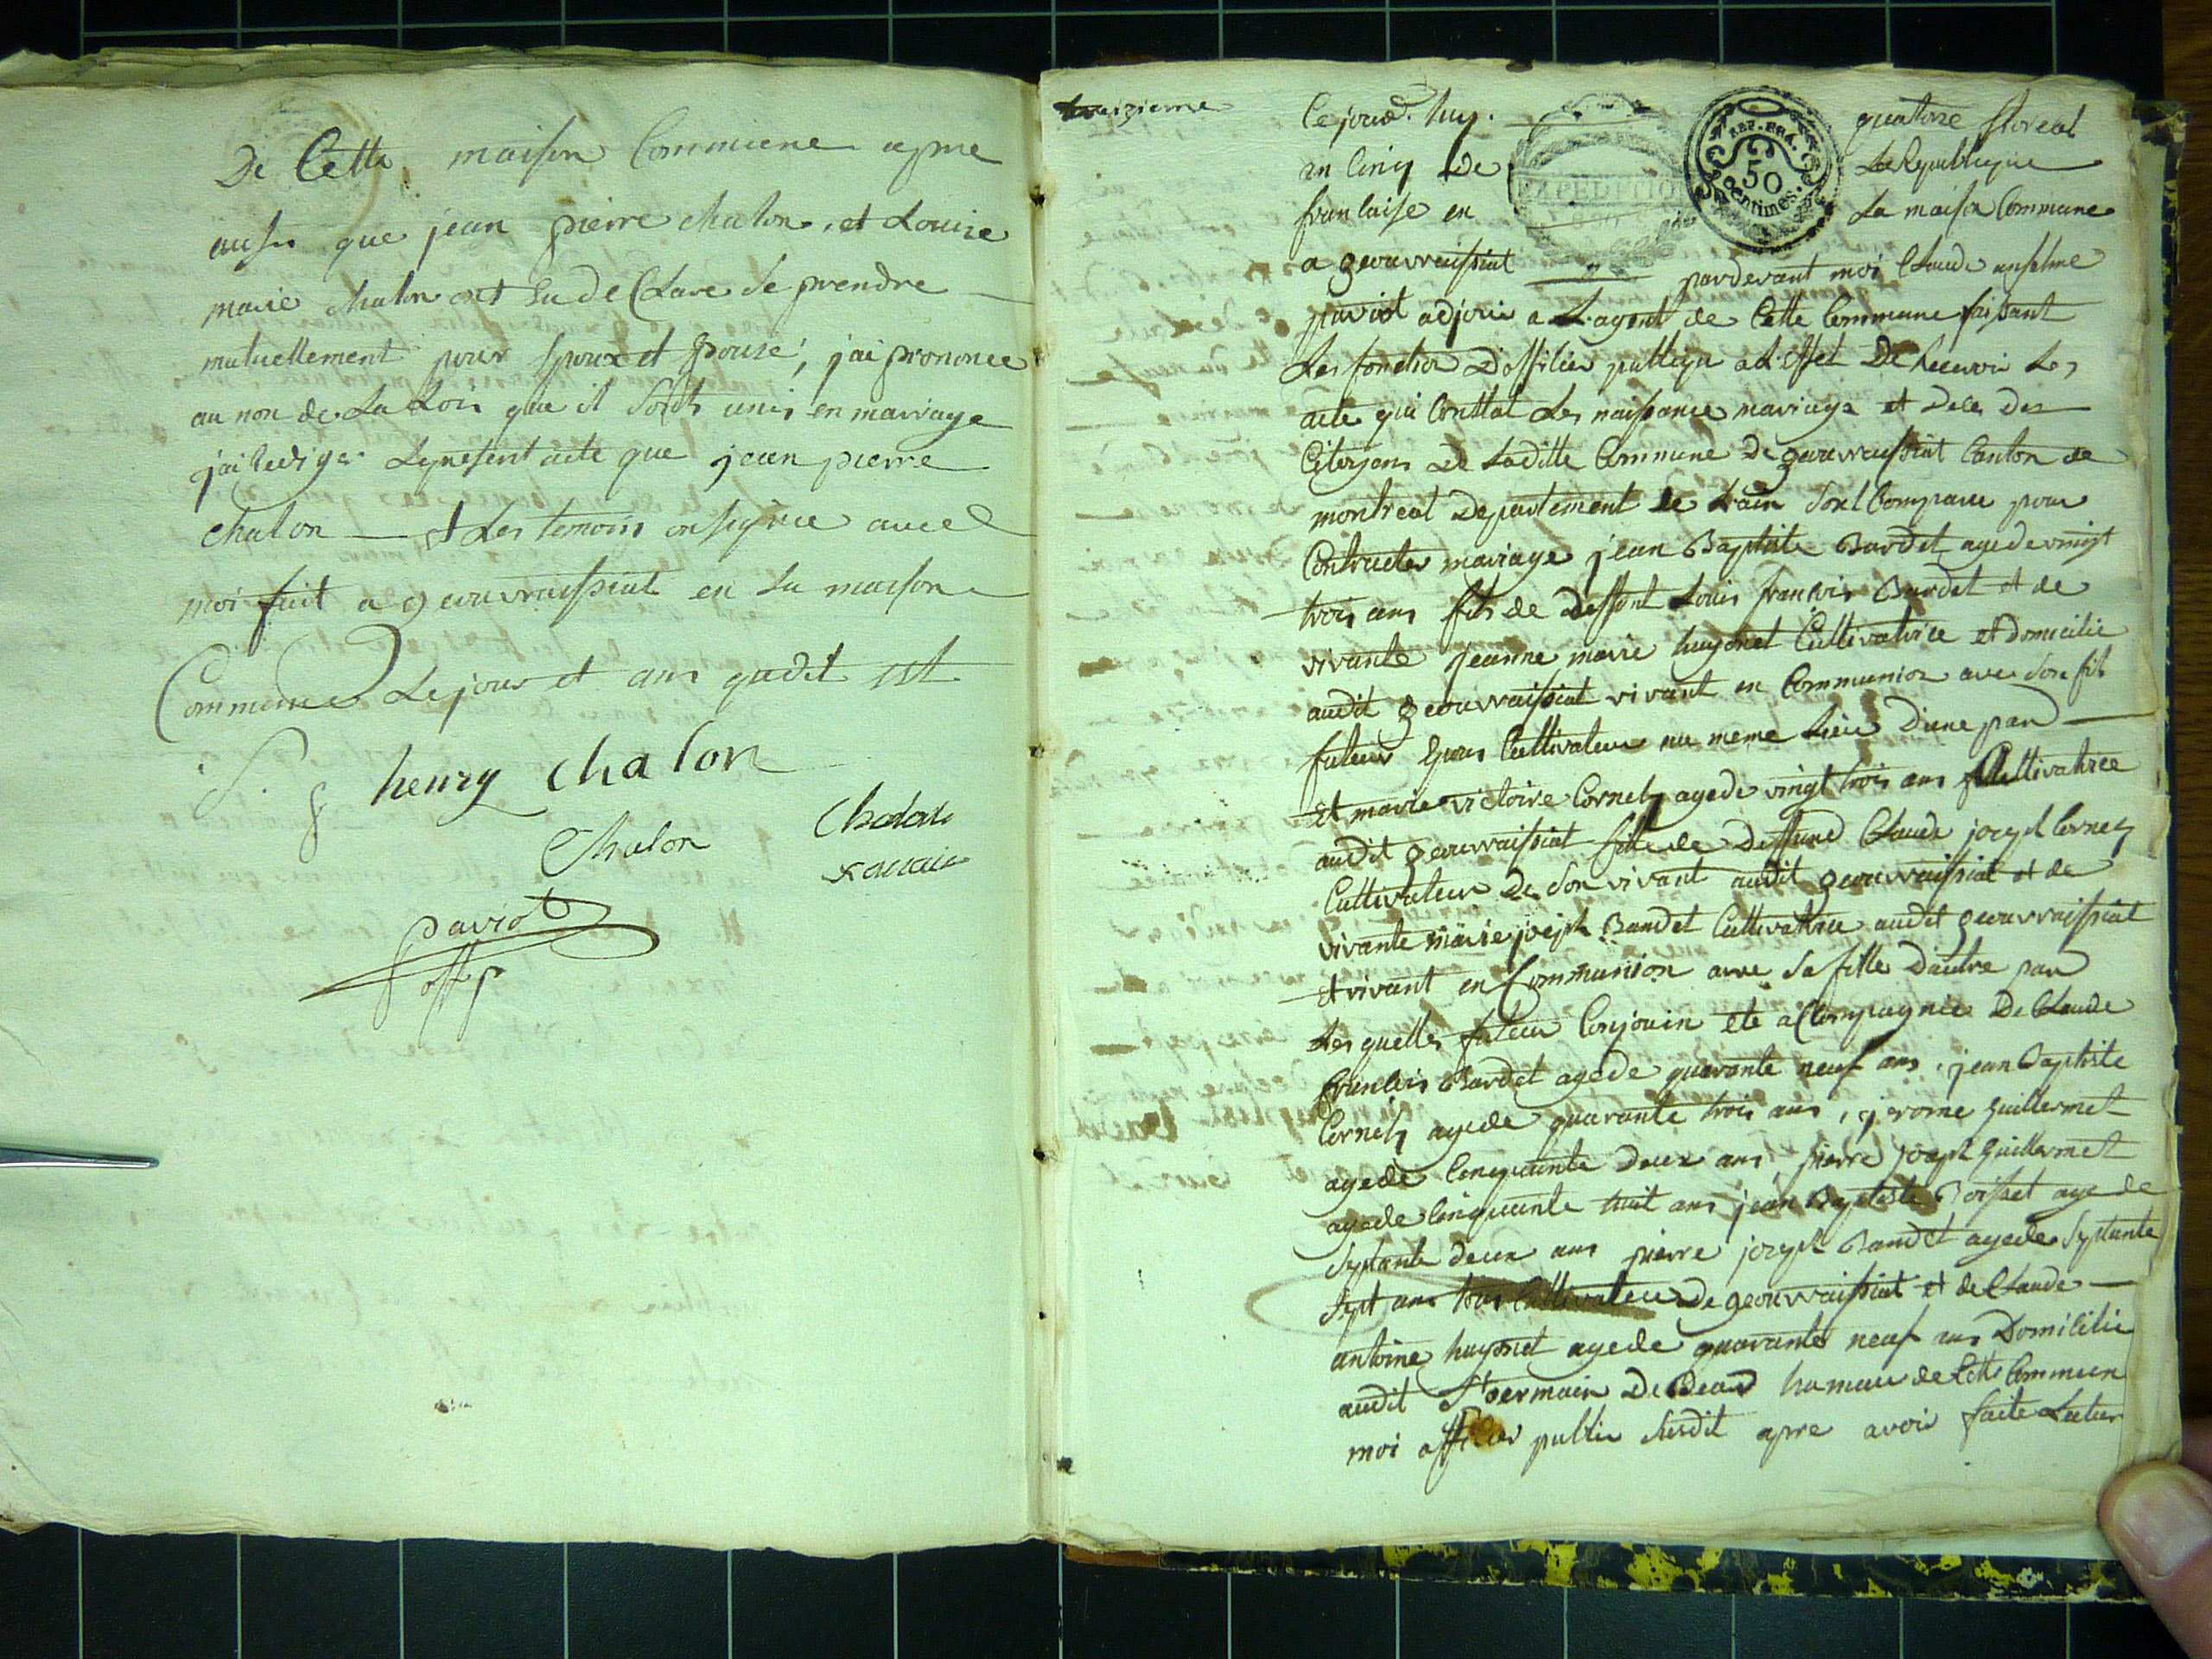 De Cette maison Commune apres
ausis que jean pierre chalon, et Louise
marie chalon ont Eu deClare se prendre
mutuellement pour Epoux et Epouse, j'ai prononce
au non de La Lois que il sont unis en mariage
j'ai Redige Lepresent acte que jean pierre
chalon et Les temoins on signee avec
moi fait a geovraissiat en La maison
Commune Le jour et ans qudit est
henry chalon
Chalon
Chalon
paviot
off p
treizieme
Cejourd. huy. quatorze floreal
an Cinq De La Republique
franCaise en La maison Commune
EXPEDITION
REP. FRA.
50
Centimes.
a geouvraissiat pardevant moi Claude anselme
paviot adjoin a L'agent de Cette Commune faissant
Les fonction D'offiCier publiqu a L'Effet De Recevoir Les
acte qui Conttat Les naissance mariage et Deces Des
Citoyens De Laditte Commune De geouvraissiat Canton de
montreal Departement de L'ain sont Comparu pour
Contracter mariage jean Baptiste Bardet agede vingt
trois ans fils de Deffunt Louis franCois Bardet et de
vivante jeanne marie hugonet Cultivatrice et domicilie
audit geouvraissiat vivant en Communion avec son fils
futeur Epous Cultivateur au meme Lieu D'une pard
Et marie victoire Cornely agede vingt trois ans Cultivatrice
audit geouvraissiat fille de Deffund Claude joseph Cornely
Cultivateur De son vivant audit geouvraissiat et de
vivante marie joseph Baudet Cultivatrice audit geouvraissiat
et vivant en Communion avec sa fille D'autre pard
Les quelles futeur Conjouin ete aCCompagnee De Claude
franCois Bardet agede quarante neuf ans, jean Baptiste
Cornely agede quarante trois ans, jerome guillermet
agede Cinquante Deux ans pierre joseph guillermet
agede Cinquante huit ans jean Baptiste Boisset age de
septante deux ans pierre joseph Baudet agede septante
sept ans tous Cultivateur De geouvraissiat et de Claude
antoine hugonet agede quarante neuf ans DomiCilie
audit St germain De Beard hameau de Cette Commun
moi offiCier public susdit apre avoir faite Lectur